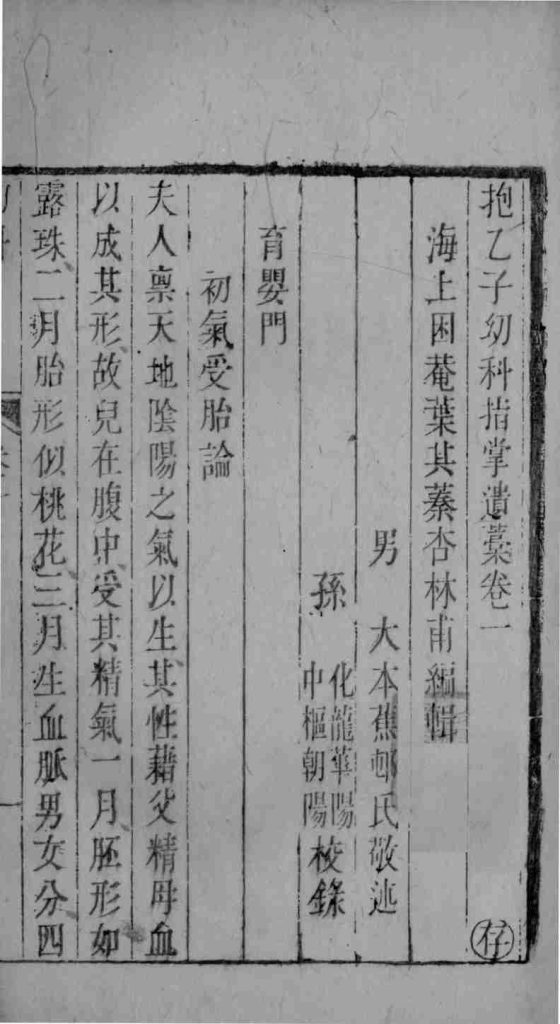 抱乙子幼科指掌遺藁卷一
海上困菴葉其蓁杏林甫編輯
男 大本蕉邨氏敬述
孫 化龍華陽 中樞朝陽 校錄
育嬰門
初氣受胎論
夫人禀天地陰陽之氣以生其性藉父精母血
以成其形故兒在腹中受其精氣一月胚形如
露珠二月胎形似桃花三月生血脈男女分四
存